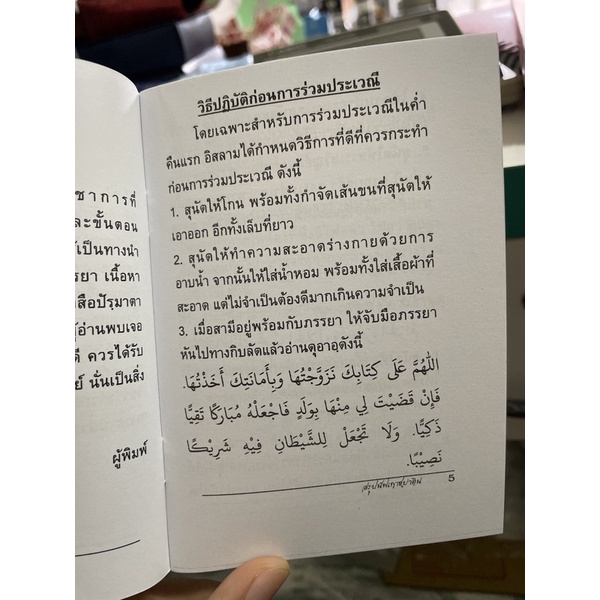 ชาการที่
ละขั้นตอน
เป็นทางนำ
รยา เนื้อหา
สือปัรฺมาตา
อ่านพบเจอ
ดี ควรได้รับ
ย์ นั่นเป็นสิ่ง
ผู้พิมพ์
วิธีปฏิบัติก่อนการร่วมประเวณี
โดยเฉพาะสำหรับการร่วมประเวณีในค่ำ
คืนแรก อิสลามได้กำหนดวิธีการที่ดีที่ควรกระทำ
ก่อนการร่วมประเวณี ดังนี้
1. สุนัตให้โกน พร้อมทั้งกำจัดเส้นขนที่สุนัตให้
เอาออก อีกทั้งเล็บที่ยาว
2. สุนัตให้ทำความสะอาดร่างกายด้วยการ
อาบน้ำ จากนั้นให้ใส่น้ำหอม พร้อมทั้งใส่เสื้อผ้าที่
สะอาด แต่ไม่จำเป็นต้องดีมากเกินความจำเป็น
3. เมื่อสามีอยู่พร้อมกับภรรยา ให้จับมือภรรยา
หันไปทางกิบลัตแล้วอ่านดุอาอฺดังนี้
اَللّٰهُمَّ عَلَى كِتَابِكَ تَزَوَّجْتُهَا وَبِأَمَانَتِكَ أَخَذْتُهَا.
فَإِنْ قَضَيْتَ لِي مِنْهَا بِوَلَدٍ فَاجْعَلْهُ مُبَارَكًا تَقِيًّا
ذَكِيًّا. وَلَا تَجْعَلْ لِلشَّيْطَانِ فِيْهِ شَرِيْكًا
نَصِيْبًا.
5